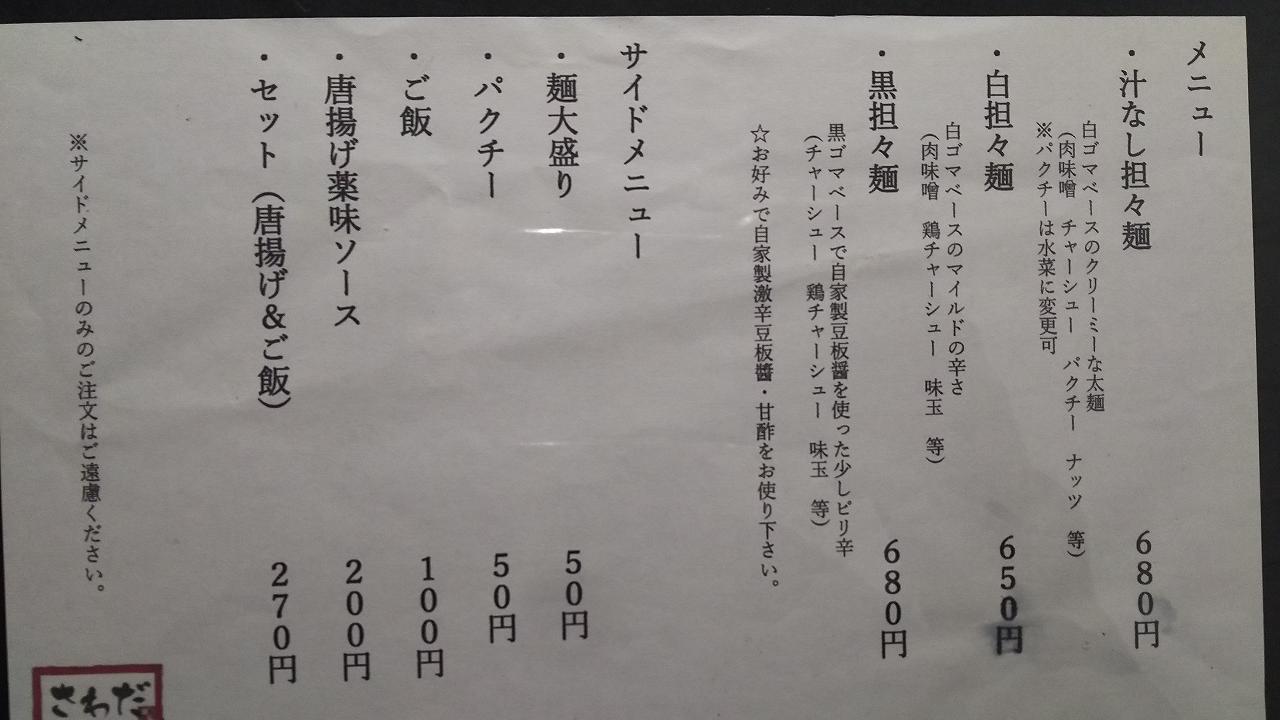 メニュー
・汁なし担々麺 680円
白ゴマベースのクリーミーな太麺
(肉味噌 チャーシュー パクチー ナッツ 等)
※パクチーは水菜に変更可
・白担々麺 650円
白ゴマベースのマイルドの辛さ
(肉味噌 鶏チャーシュー 味玉 等)
・黒担々麺 680円
黒ゴマベースで自家製豆板醤を使った少しピリ辛
(チャーシュー 鶏チャーシュー 味玉 等)
☆お好みで自家製激辛豆板醤・甘酢をお使り下さい。
サイドメニュー
・麺大盛り 50円
・パクチー 50円
・ご飯 100円
・唐揚げ薬味ソース 200円
・セット(唐揚げ&ご飯) 270円
※サイドメニューのみのご注文はご遠慮ください。
さわだ